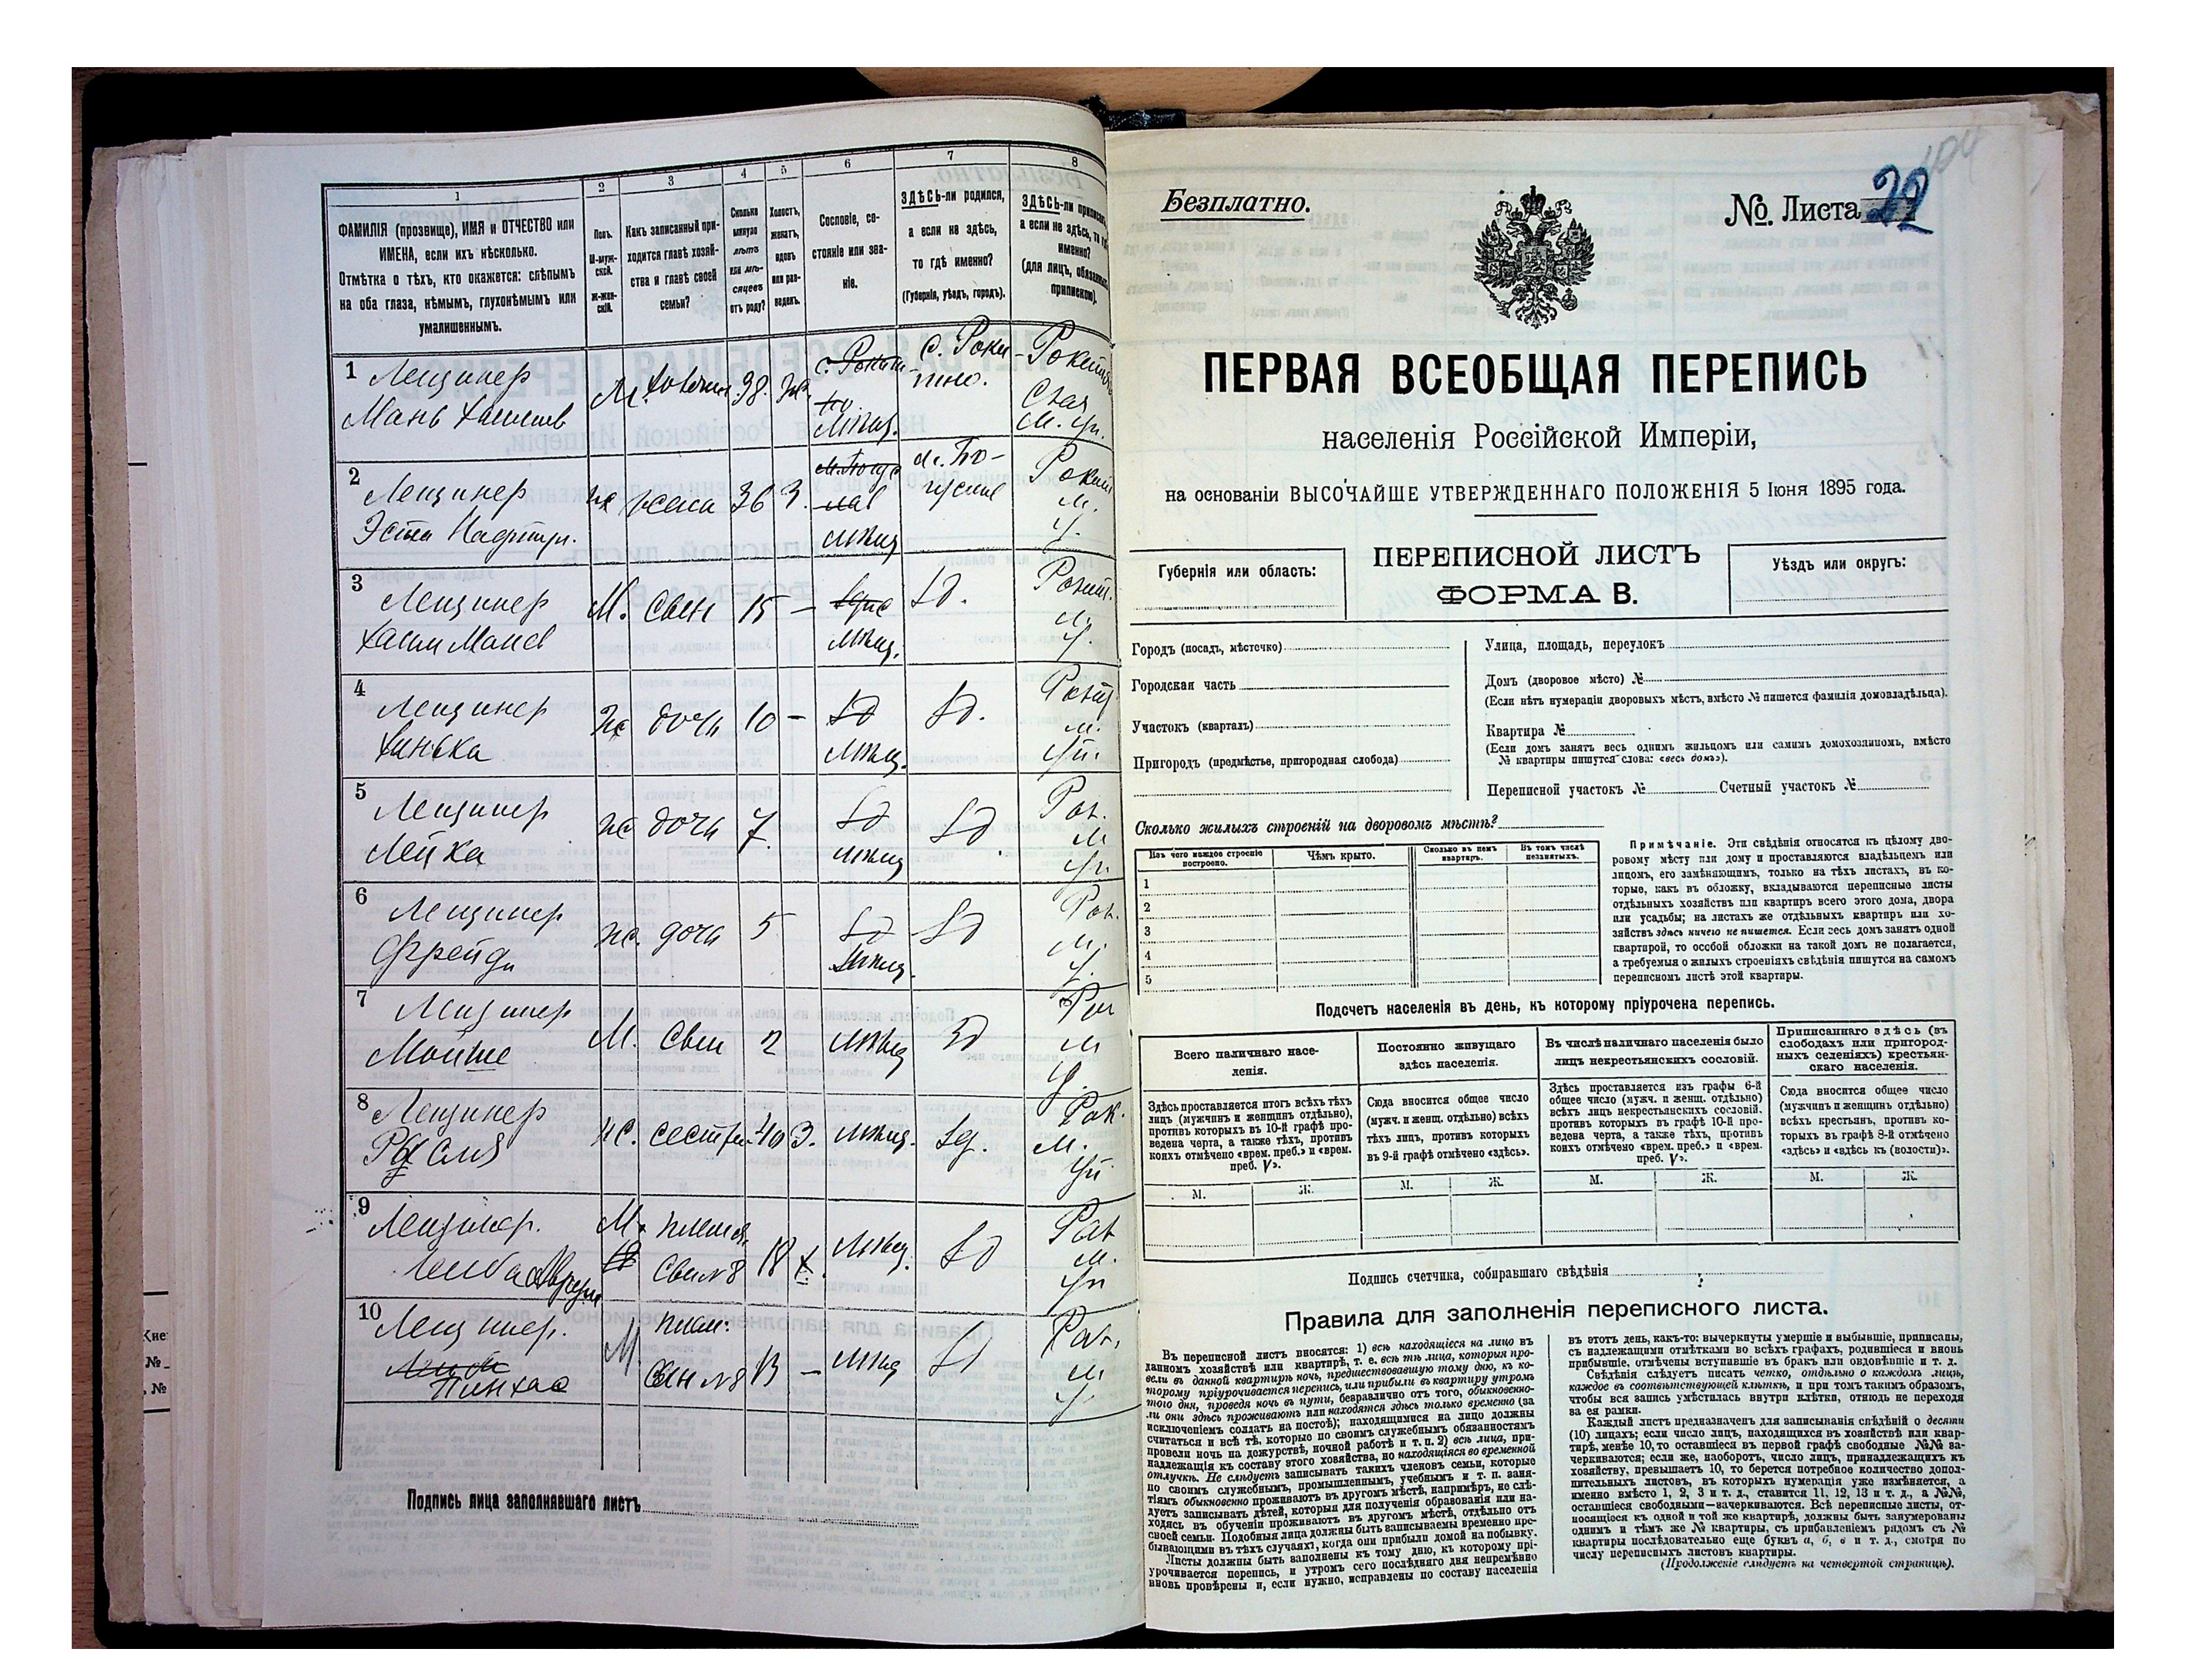 1
2
3
4
5
6
7
8
ФАМИЛІЯ (прозвище), ИМЯ и ОТЧЕСТВО или
ИМЕНА, если ихъ нѣсколько.
Отмѣтка о тѣхъ, кто окажется: слѣпымъ
на оба глаза, нѣмымъ, глухонѣмымъ или
умалишеннымъ.
Полъ.
М-муж-
ской.
Ж-жен-
скій.
Какъ записанный при-
ходится главѣ хозяй-
ства и главѣ своей
семьи?
Сколько
минуло
лѣтъ
или мѣ-
сяцевъ
отъ роду?
Холостъ,
женатъ,
вдовъ
или раз-
веденъ.
Сословіе, со-
стояніе или зва-
ніе.
ЗДѢСЬ-ли родился,
а если не здѣсь,
то гдѣ именно?
(Губернія, уѣздъ, городъ).
ЗДѢСЬ-ли приписанъ,
а если не здѣсь, то гдѣ
именно?
(для лицъ, обязанныхъ
припискою).
1 Лещинер
М. 38. с. Роки-
тно.
мѣщ.
2 Лещинер
ж жена 36 З.
мѣщ
3 Лещинер
М. Сынъ 15 –
мѣщ.
4 Лещинер
Ханька
ж дочь 10 –
мѣщ.
5 Лещинер
Лейка
ж дочь 7.
мѣщ
6 Лещинер
Фрейда
ж. дочь 5
мѣщ.
7 Лещинер
Мойше
М. Сынъ 2 мѣщ
8 Лещинер
ж. сестра 40 З. мѣщ.
9 Лещинер.
М. племя.
Сын №8 18 Х. мѣщ.
10 Лещинер.
Пинхас
М плем:
Сын №8 13 – мѣщ
Подпись лица заполнявшаго листъ
Безплатно.
№. Листа 22
104
ПЕРВАЯ ВСЕОБЩАЯ ПЕРЕПИСЬ
населенія Россійской Имперіи,
на основаніи ВЫСОЧАЙШЕ УТВЕРЖДЕННАГО ПОЛОЖЕНІЯ 5 Іюня 1895 года.
Губернія или область:
ПЕРЕПИСНОЙ ЛИСТЪ
ФОРМА В.
Уѣздъ или округъ:
Городъ (посадъ, мѣстечко)
Городская часть
Участокъ (кварталъ)
Пригородъ (предмѣстье, пригородная слобода)
Улица, площадь, переулокъ
Домъ (дворовое мѣсто) №
(Если нѣтъ нумераціи дворовыхъ мѣстъ, вмѣсто № пишется фамилія домовладѣльца).
Квартира №
(Если домъ занятъ весь однимъ жильцомъ или самимъ домохозяиномъ, вмѣсто
№ квартиры пишутся слова: «весь домъ»).
Переписной участокъ № Счетный участокъ №
Сколько жилыхъ строеній на дворовомъ мѣстѣ?
Изъ чего каждое строеніе
построено.
Чѣмъ крыто.
Сколько въ немъ
квартиръ.
Въ томъ числѣ
незанятыхъ.
1
2
3
4
5
Примѣчаніе. Эти свѣдѣнія относятся къ цѣлому дво-
ровому мѣсту или дому и проставляются владѣльцемъ или
лицомъ, его замѣняющимъ, только на тѣхъ листахъ, въ ко-
торые, какъ въ обложку, вкладываются переписные листы
отдѣльныхъ хозяйствъ или квартиръ всего этого дома, двора
или усадьбы; на листахъ же отдѣльныхъ квартиръ или хо-
зяйствъ здѣсь ничего не пишется. Если весь домъ занятъ одной
квартирой, то особой обложки на такой домъ не полагается,
а требуемыя о жилыхъ строеніяхъ свѣдѣнія пишутся на самомъ
переписномъ листѣ этой квартиры.
Подсчетъ населенія въ день, къ которому пріурочена перепись.
Всего наличнаго насе-
ленія.
Постоянно живущаго
здѣсь населенія.
Въ числѣ наличнаго населенія было
лицъ некрестьянскихъ сословій.
Приписаннаго здѣсь (въ
слободахъ или пригород-
ныхъ селеніяхъ) крестьян-
скаго населенія.
Здѣсь проставляется итогъ всѣхъ тѣхъ
лицъ (мужчинъ и женщинъ отдѣльно),
противъ которыхъ въ 10-й графѣ про-
ведена черта, а также тѣхъ, противъ
коихъ отмѣчено «врем. преб.» и «врем.
преб. V».
Сюда вносится общее число
(мужч. и женщ. отдѣльно) всѣхъ
тѣхъ лицъ, противъ которыхъ
въ 9-й графѣ отмѣчено «здѣсь».
Здѣсь проставляется изъ графы 6-й
общее число (мужч. и женщ. отдѣльно)
всѣхъ лицъ некрестьянскихъ сословій,
противъ которыхъ въ графѣ 10-й про-
ведена черта, а также тѣхъ, противъ
коихъ отмѣчено «врем. преб.» и «врем.
преб. V».
Сюда вносится общее число
(мужчинъ и женщинъ отдѣльно)
всѣхъ крестьянъ, противъ ко-
торыхъ въ графѣ 8-й отмѣчено
«здѣсь» и «здѣсь къ (волости)».
М. Ж. М. Ж. М. Ж. М. Ж.
Подпись счетчика, собиравшаго свѣдѣнія
Правила для заполненія переписного листа.
Въ переписной листъ вносятся: 1) всѣ находящіеся на лицо въ
данномъ хозяйствѣ или квартирѣ, т. е. всѣ тѣ лица, которыя про-
вели въ данной квартирѣ ночь, предшествовавшую тому дню, къ ко-
торому пріурочивается перепись, или прибыли въ квартиру утромъ
того дня, проведя ночь въ пути, безразлично отъ того, обыкновенно-
ли они здѣсь проживаютъ или находятся здѣсь только временно (за
исключеніемъ солдатъ на постоѣ); находящимися на лицо должны
считаться и всѣ тѣ, которые по своимъ служебнымъ обязанностямъ
провели ночь на дежурствѣ, ночной работѣ и т. п. 2) всѣ лица, при-
надлежащія къ составу этого хозяйства, но находящіяся во временной
отлучкѣ. Не слѣдуетъ записывать такихъ членовъ семьи, которые
по своимъ служебнымъ, промышленнымъ, учебнымъ и т. п. заня-
тіямъ обыкновенно проживаютъ въ другомъ мѣстѣ, напримѣръ, не слѣ-
дуетъ записывать дѣтей, которыя для полученія образованія или на-
ходясь въ обученіи проживаютъ въ другомъ мѣстѣ, отдѣльно отъ
своей семьи. Подобныя лица должны быть записываемы временно пре-
бывающими въ тѣхъ случаяхъ, когда они прибыли домой на побывку.
Листы должны быть заполнены къ тому дню, къ которому прі-
урочивается перепись, и утромъ сего послѣдняго дня непремѣнно
вновь провѣрены и, если нужно, исправлены по составу населенія
въ этотъ день, какъ-то: вычеркнуты умершіе и выбывшіе, приписаны,
съ надлежащими отмѣтками во всѣхъ графахъ, родившіеся и вновь
прибывшіе, отмѣчены вступившіе въ бракъ или овдовѣвшіе и т. д.
Свѣдѣнія слѣдуетъ писать четко, отдѣльно о каждомъ лицѣ,
каждое въ соотвѣтствующей клѣткѣ, и при томъ такимъ образомъ,
чтобы вся запись умѣстилась внутри клѣтки, отнюдь не переходя
за ея рамки.
Каждый листъ предназначенъ для записыванія свѣдѣній о десяти
(10) лицахъ; если число лицъ, находящихся въ хозяйствѣ или квар-
тирѣ, менѣе 10, то оставшіеся въ первой графѣ свободные №№ за-
черкиваются; если же, наоборотъ, число лицъ, принадлежащихъ къ
хозяйству, превышаетъ 10, то берется потребное количество допол-
нительныхъ листовъ, въ которыхъ нумерація уже измѣняется, а
именно вмѣсто 1, 2, 3 и т. д., ставится 11, 12, 13 и т. д., а №№,
оставшіеся свободными—зачеркиваются. Всѣ переписные листы, от-
носящіеся къ одной и той же квартирѣ, должны быть занумерованы
однимъ и тѣмъ же № квартиры, съ прибавленіемъ рядомъ съ №
квартиры послѣдовательно еще буквъ а, б, в и т. д., смотря по
числу переписныхъ листовъ квартиры.
(Продолженіе слѣдуетъ на четвертой страницѣ).